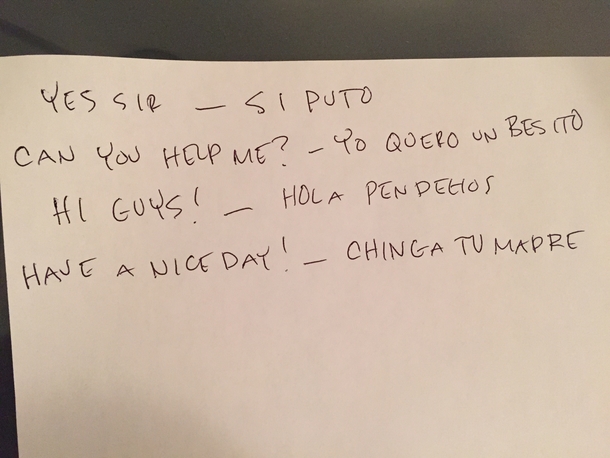 YES SIR — SI PUTO
CAN YOU HELP ME? – YO QUERO UN BESITO
HI GUYS! — HOLA PENDEGIOS
HAVE A NICE DAY! — CHINGA TU MADRE